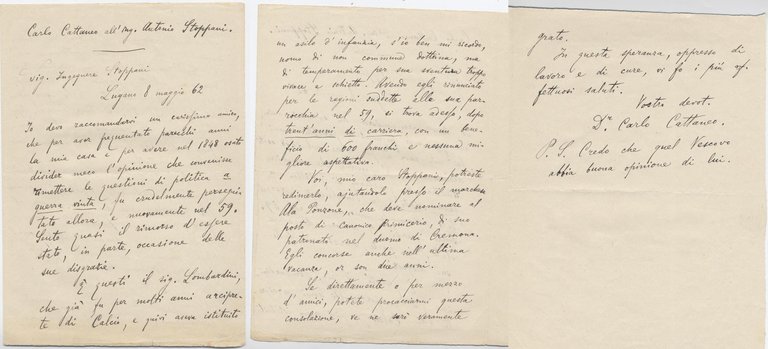 Carlo Cattaneo all'Ing. Antonio Stoppani.
Sig. Ingegnere Stoppani
Lugano 8 maggio 62
Io devo raccomandarvi un carissimo amico,
che per aver frequentato parecchi anni
la mia casa e per avere nel 1848 osato
divider meco l'opinione che convenisse
rimettere le questioni di politica a
guerra vinta, fu crudelmente persegui
tato allora, e nuovamente nel 59.
Sento quasi il rimorso d'essere
stato, in parte, occasione delle
sue disgrazie.
È questi il sig. Lombardini,
che già fu per molti anni arcipre-
te di Calcio, e quivi aveva istituito
un asilo d'infanzia, s'io ben mi ricordo,
uomo di non comune dottrina, ma
di temperamento per sua sventura troppo
vivace e schietto. Avendo egli rinunciato
per le ragioni suddette alla sua par-
rocchia nel 59, si trova adesso, dopo
trent'anni di carriera, con un bene-
ficio di 600 franchi e nessuna mi-
gliore aspettativa.
Voi, mio caro Stoppani, potreste
redimerlo, ajutandolo presso il marchese
Ala Ponzone, che deve nominare al
posto di canonico primicerio, di suo
patronato nel duomo di Cremona.
Egli concorse anche nell'ultima
vacanza, or son due anni.
Se direttamente o per mezzo
d'amici, potete procacciarmi questa
consolazione, ve ne sarò veramente
grato.
In questa speranza, oppresso di
lavoro e di cure, vi fo i più af-
fettuosi saluti.
Vostro devot.
Dr. Carlo Cattaneo.
P. S. Credo che quel Vescovo
abbia buona opinione di lui.